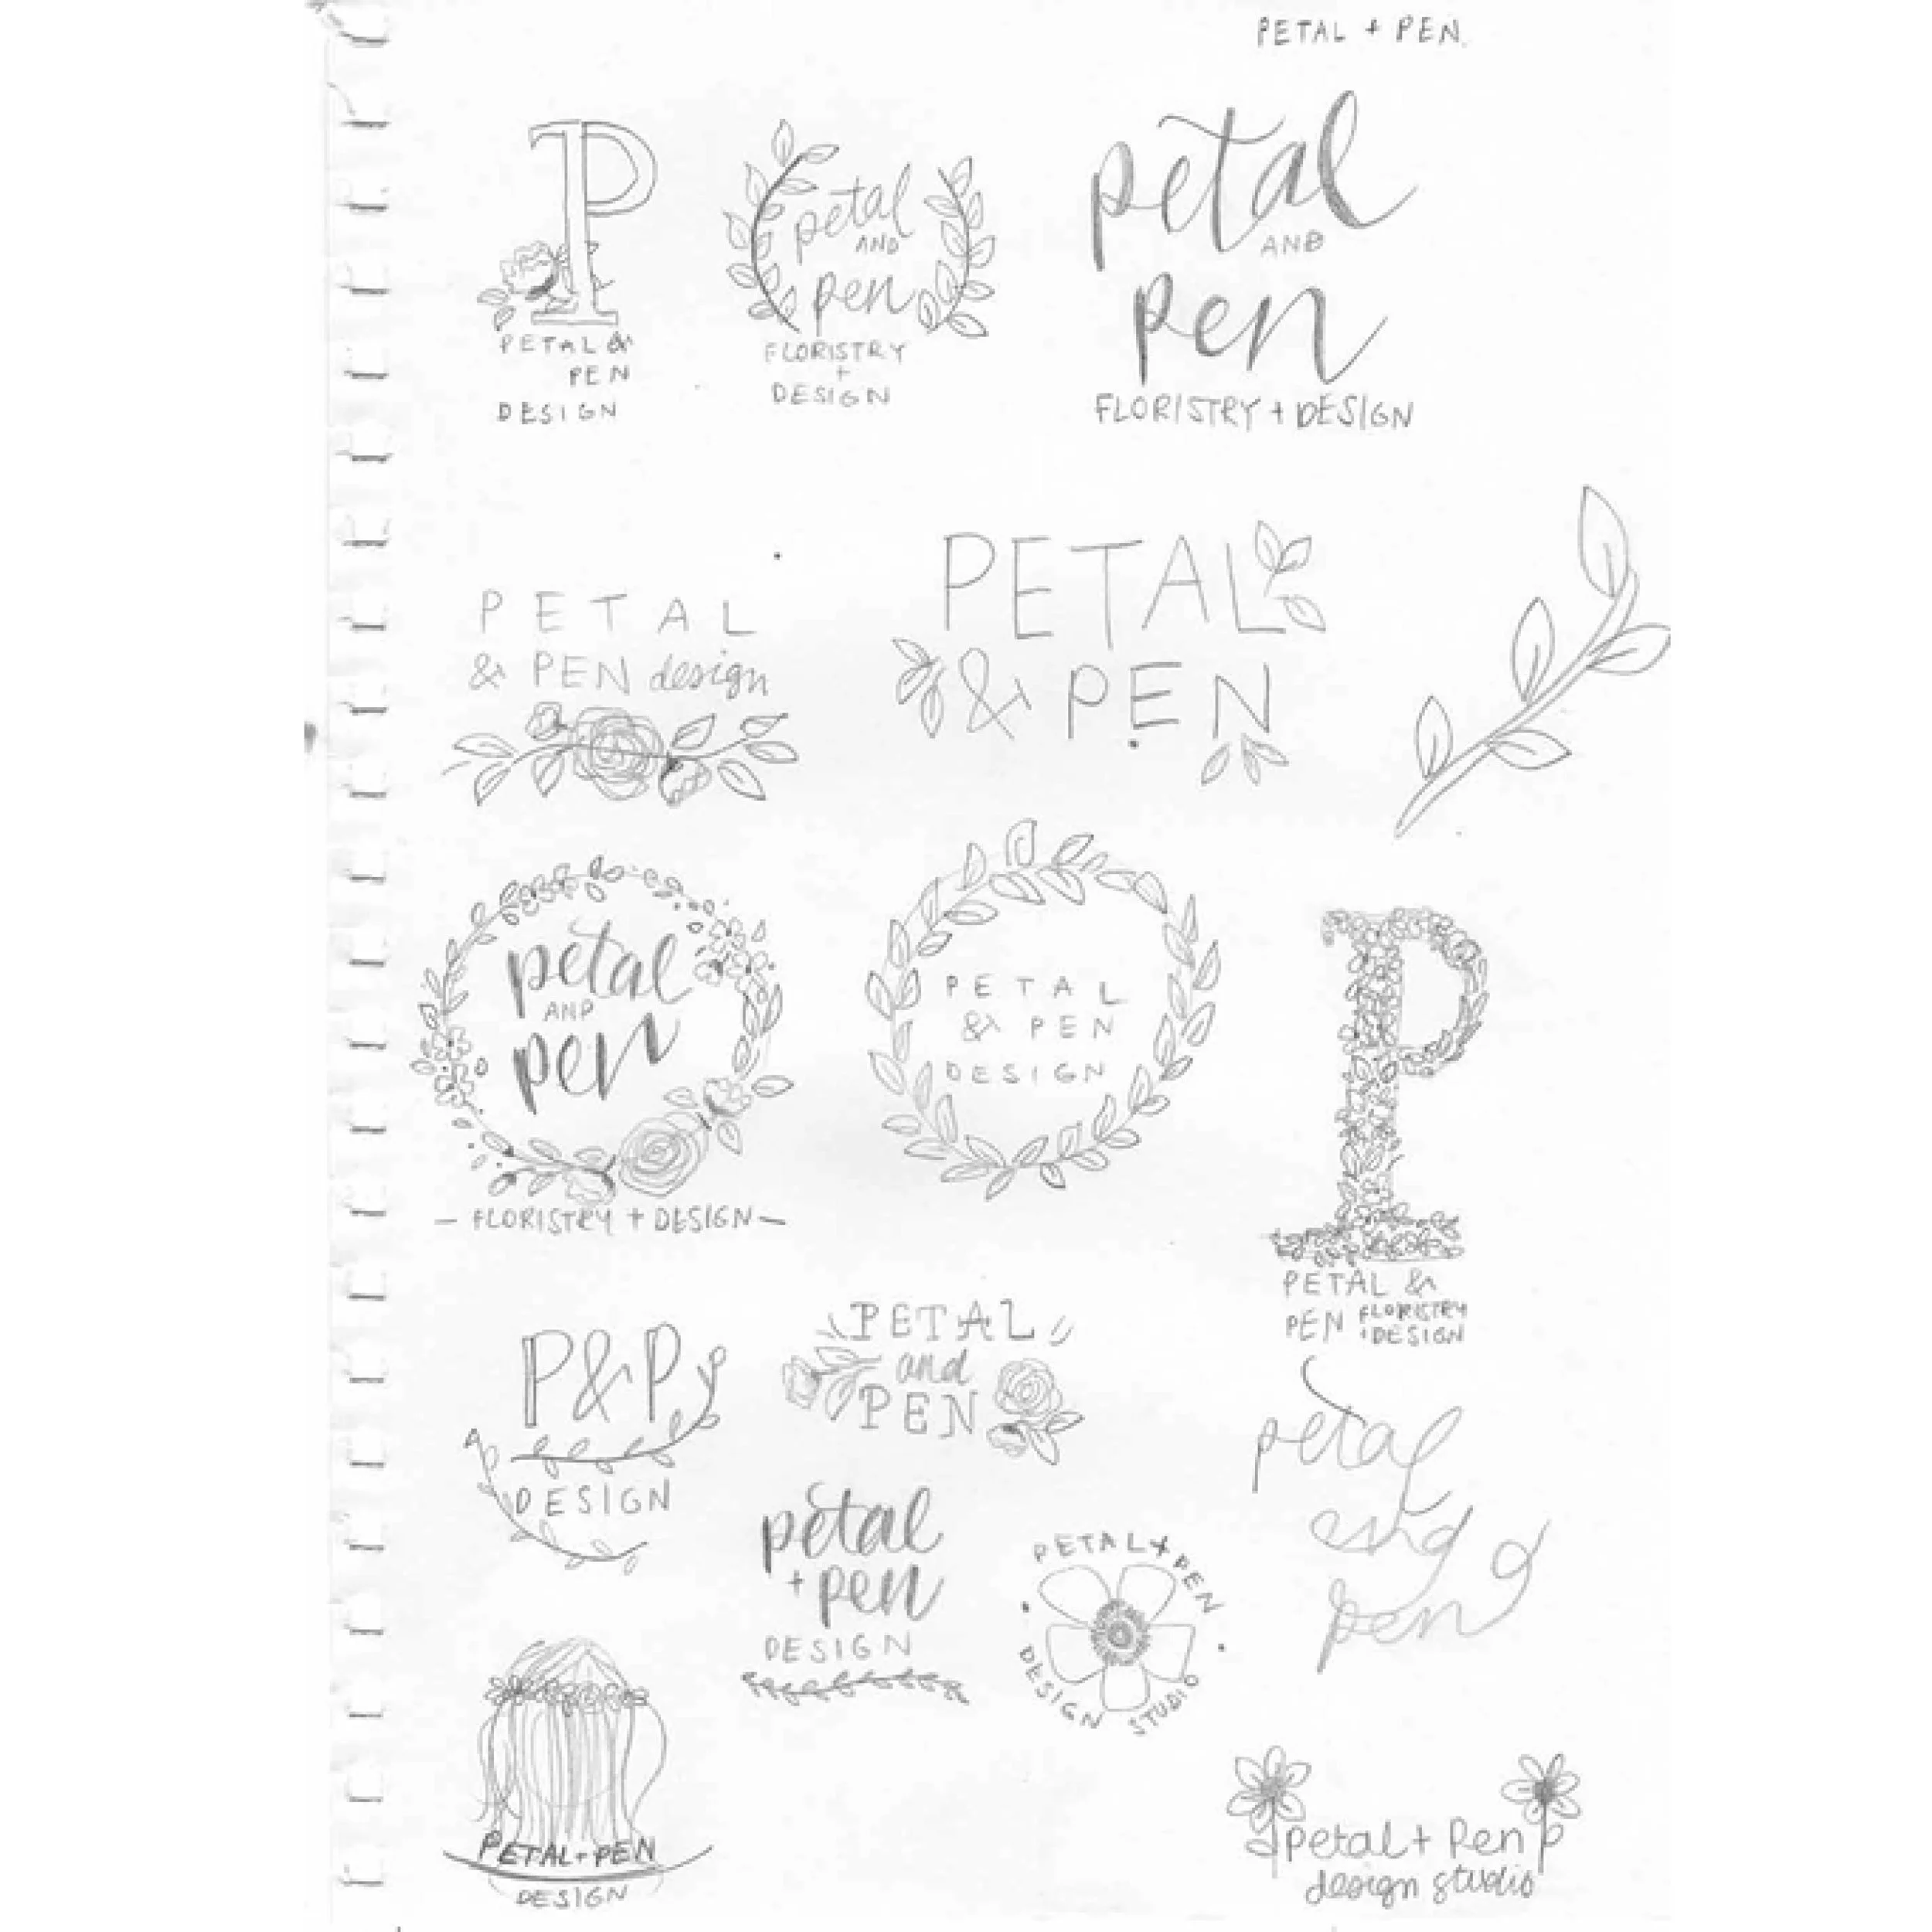 PETAL + PEN.
P
PETAL &
PEN
DESIGN
petal
AND
pen
FLORISTRY
+
DESIGN
petal
AND
pen
FLORISTRY + DESIGN
PETAL
& PEN design
PETAL
& PEN
petal
AND
pen
— FLORISTRY + DESIGN —
PETAL
& PEN
DESIGN
P
PETAL &
PEN FLORISTRY
+DESIGN
P&P
DESIGN
PETAL
and
PEN
petal
and
pen
petal
+ pen
DESIGN
PETAL + PEN
DESIGN STUDIO
PETAL + PEN
DESIGN
petal + Pen
design studio